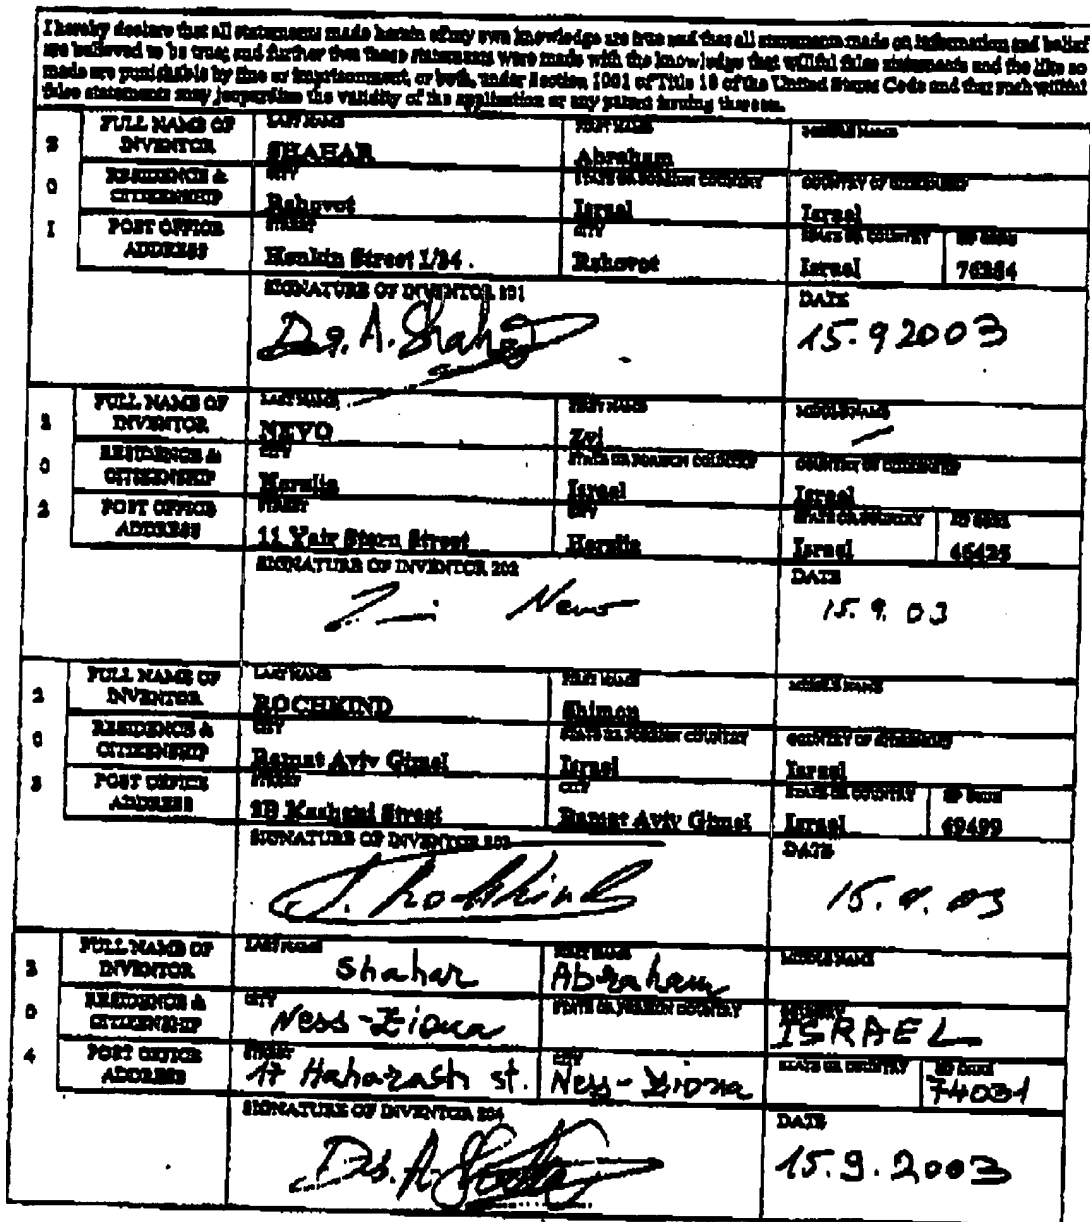 I hereby declare that all statements made herein of my own knowledge are true and that all statements made on information and belief
are believed to be true; and further that these statements were made with the knowledge that willful false statements and the like so
made are punishable by fine or imprisonment, or both, under Section 1001 of Title 18 of the United States Code and that such willful
false statements may jeopardize the validity of the application or any patent issuing thereon.
2 0 1
FULL NAME OF INVENTOR
LAST NAME SHAHAR
FIRST NAME Abraham
MIDDLE NAME
RESIDENCE & CITIZENSHIP
CITY Rehovot
STATE OR FOREIGN COUNTRY Israel
COUNTRY OF CITIZENSHIP Israel
POST OFFICE ADDRESS
STREET Henkin Street 1/24
CITY Rehovot
STATE OR COUNTRY Israel
ZIP CODE 76284
SIGNATURE OF INVENTOR 201
Dr. A. Shahar
DATE
15.9 2003
2 0 2
FULL NAME OF INVENTOR
LAST NAME NEVO
FIRST NAME Zvi
MIDDLE NAME —
RESIDENCE & CITIZENSHIP
CITY Herzlia
STATE OR FOREIGN COUNTRY Israel
COUNTRY OF CITIZENSHIP Israel
POST OFFICE ADDRESS
STREET 11 Yair Stern Street
CITY Herzlia
STATE OR COUNTRY Israel
ZIP CODE 46425
SIGNATURE OF INVENTOR 202
Nevo
DATE
15.9.03
2 0 3
FULL NAME OF INVENTOR
LAST NAME ROCHKIND
FIRST NAME Shimon
MIDDLE NAME
RESIDENCE & CITIZENSHIP
CITY Ramat Aviv Gimel
STATE OR FOREIGN COUNTRY Israel
COUNTRY OF CITIZENSHIP Israel
POST OFFICE ADDRESS
STREET Street
CITY Ramat Aviv Gimel
STATE OR COUNTRY Israel
ZIP CODE 69499
SIGNATURE OF INVENTOR 203
S. Rochkind
DATE
15.9.03
2 0 4
FULL NAME OF INVENTOR
LAST NAME Shahar
FIRST NAME Abraham
MIDDLE NAME
RESIDENCE & CITIZENSHIP
CITY Ness-Ziona
STATE OR FOREIGN COUNTRY
ISRAEL
POST OFFICE ADDRESS
STREET 17 Haharash st.
CITY Ness-Ziona
STATE OR COUNTRY
ZIP CODE 74031
SIGNATURE OF INVENTOR 204
Dr. A. Shahar
DATE
15.9.2003